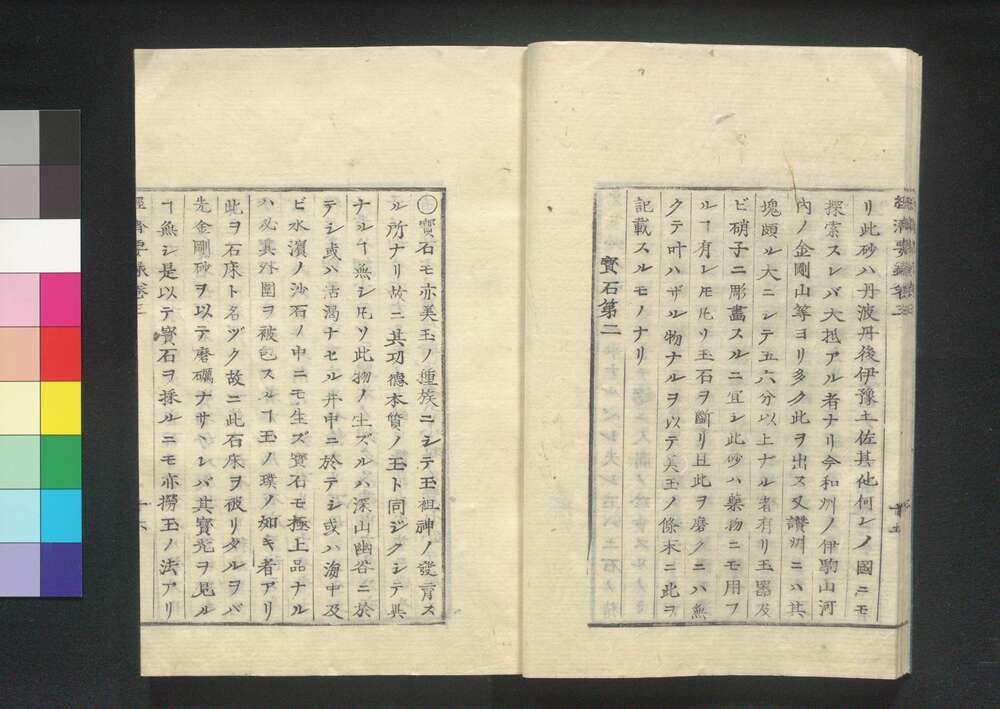 リ此砂ハ丹波丹後伊豫土佐其他何レノ國ニモ
探索スレバ大抵アル者ナリ今和州ノ伊駒山河
內ノ金剛山等ヨリ多ク此ヲ出ス又讃州ニハ其
塊頗ル大ニシテ五六分以上ナル者有リ玉器及
ビ硝子ニ彫畫スルニ宜シ此砂ハ藥物ニモ用フ
ルヿ有レ𪜈リ玉石ヲ斷リ且此ヲ磨クニハ無
クテ叶ハザル物ナルヲ以テ美玉ノ條末ニ此ヲ
記載スルモノナリ
寳石第二
○寳石モ亦美玉ノ種族ニシテ玉祖神ノ發育ス
ル所ナリ故ニ其功德本質ノ玉ト同ジクシテ異
ナルヿ無シ𠘨ソ此物ノ生ズルハ深山幽谷ニ於
テシ或ハ沽渇ナセル井中ニ於テシ或ハ海中及
ビ水濱ノ沙石ノ中ニモ生ズ寳石モ極上品ナル
ハ必其外圍ヲ被包スルヿ玉ノ璞ノ如キ者アリ
此ヲ石床ト名ヅク故ニ此石床ヲ破リタルヲバ
先金剛砂ヲ以テ磨礪ナサヾレバ其寳光ヲ見ル
ヿ無シ是以テ寳石ヲ採ルニモ亦撈玉ノ法アリ
經濟要錄卷三
十六